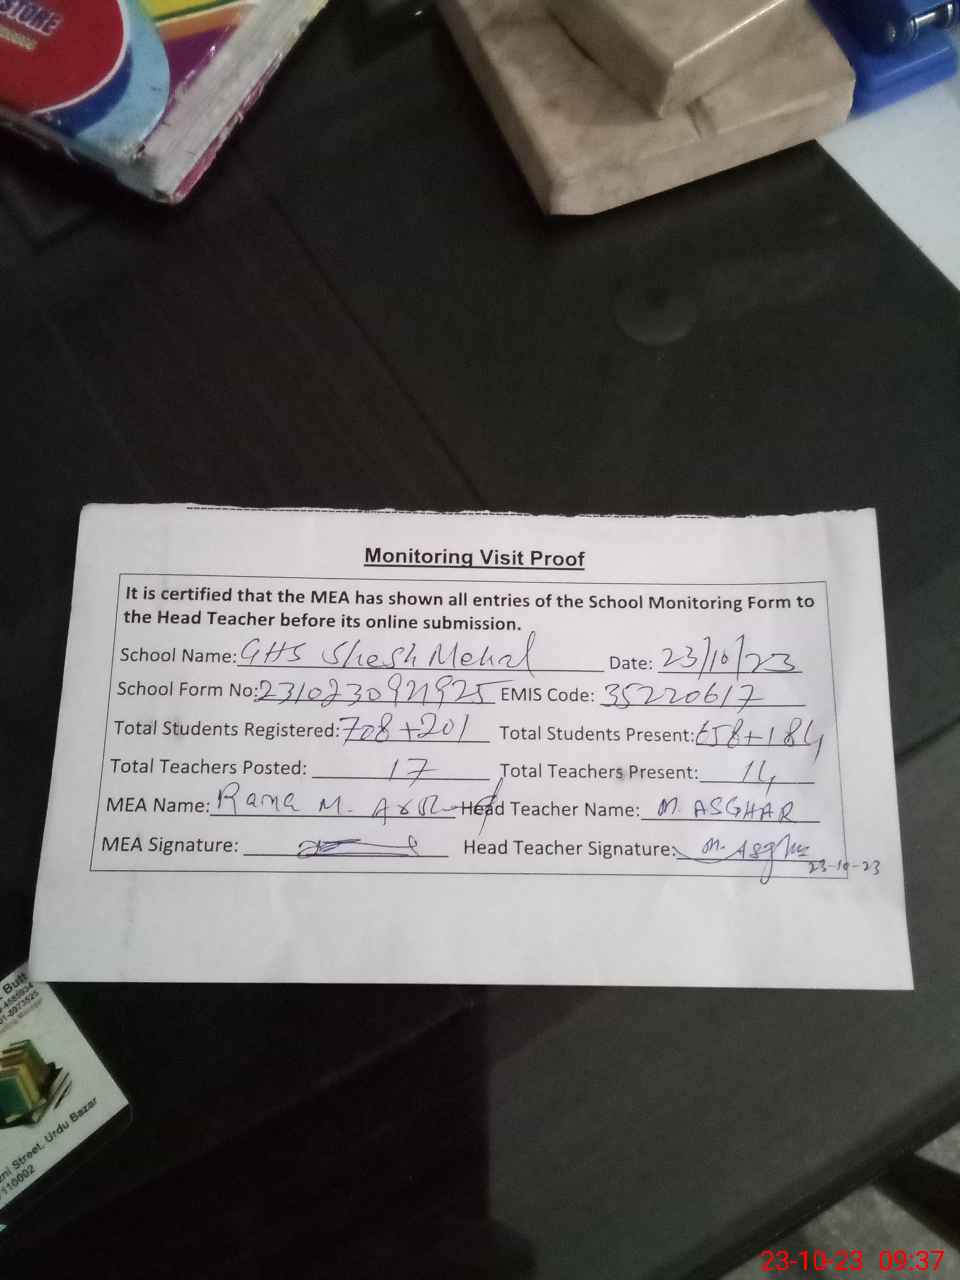 STONE
Monitoring Visit Proof
It is certified that the MEA has shown all entries of the School Monitoring Form to
the Head Teacher before its online submission.
School Name: GHS Shesh Mehal Date: 23/10/23
School Form No: 2310230921925 EMIS Code: 35220617
Total Students Registered: 708+201 Total Students Present: 658+184
Total Teachers Posted: 17 Total Teachers Present: 14
MEA Name: Rana M. Head Teacher Name: M. ASGHAR
MEA Signature: Head Teacher Signature: M. Asghar
23-10-23
Butt
Street, Urdu Bazar
110002
23-10-23 09:37